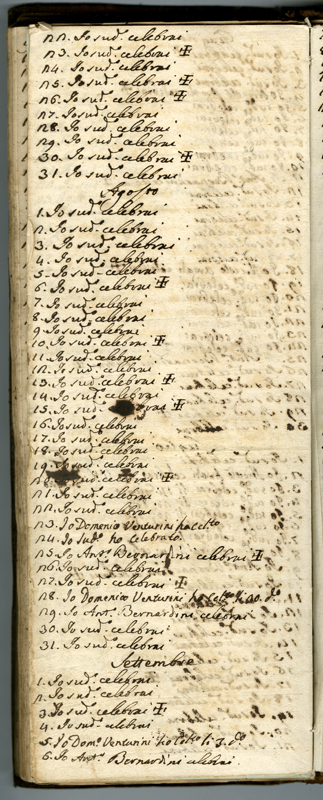 22. Io sud.º celebrai
23. Io sud.º celebrai ✠
24. Io sud.º celebrai
25. Io sud.º celebrai ✠
26. Io sud.º celebrai ✠
27. Io sud.º celebrai
28. Io sud.º celebrai
29. Io sud.º celebrai
30. Io sud.º celebrai ✠
31. Io sud.º celebrai
Agosto
1. Io sud.º celebrai
2. Io sud.º celebrai
3. Io sud.º celebrai
4. Io sud.º celebrai
5. Io sud.º celebrai
6. Io sud.º celebrai ✠
7. Io sud.º celebrai
8. Io sud.º celebrai
9. Io sud.º celebrai
10. Io sud.º celebrai ✠
11. Io sud.º celebrai
12. Io sud.º celebrai
13. Io sud.º celebrai ✠
14. Io sud.º celebrai
15. Io sud.º ✠
16. Io sud.º celebrai
17. Io sud.º celebrai
18. Io sud.º celebrai
19. Io sud.º celebrai
sud.º celebrai ✠
21. Io sud.º celebrai
22. Io sud.º celebrai
23. Io Domenico Venturini ho celto
24. Io sud.º ho celebrato
25. Io Ant.º Bernardini celebrai ✠
26. Io sud.º celebrai
27. Io sud.º celebrai ✠
28. Io Domenico Venturini ho celto
29. Io Ant.º Bernardini celebrai
30. Io sud.º celebrai
31. Io sud.º celebrai
Settembre
1. Io sud.º celebrai
2. Io sud.º celebrai
3. Io sud.º celebrai ✠
4. Io sud.º celebrai
5. Io Dom.º Venturini ho
6. Io Ant.º Bernardini celebrai